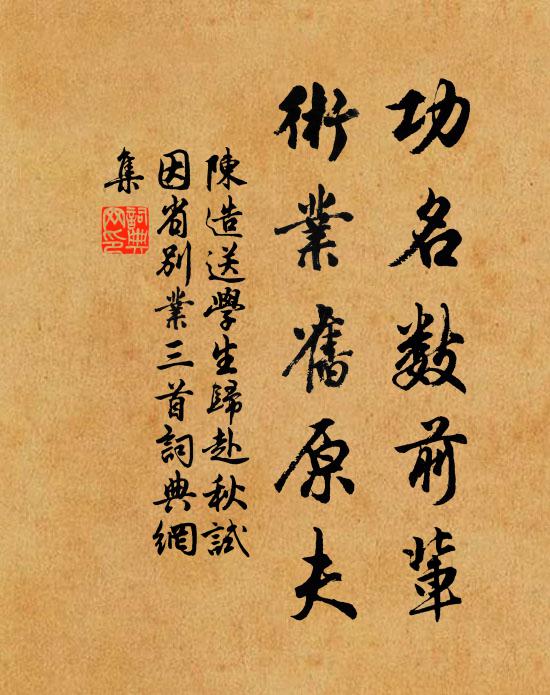 功名數前輩
術業舊原夫
陳造送學生歸赴秋試
因省別業三首詞典網
集
詞典網印